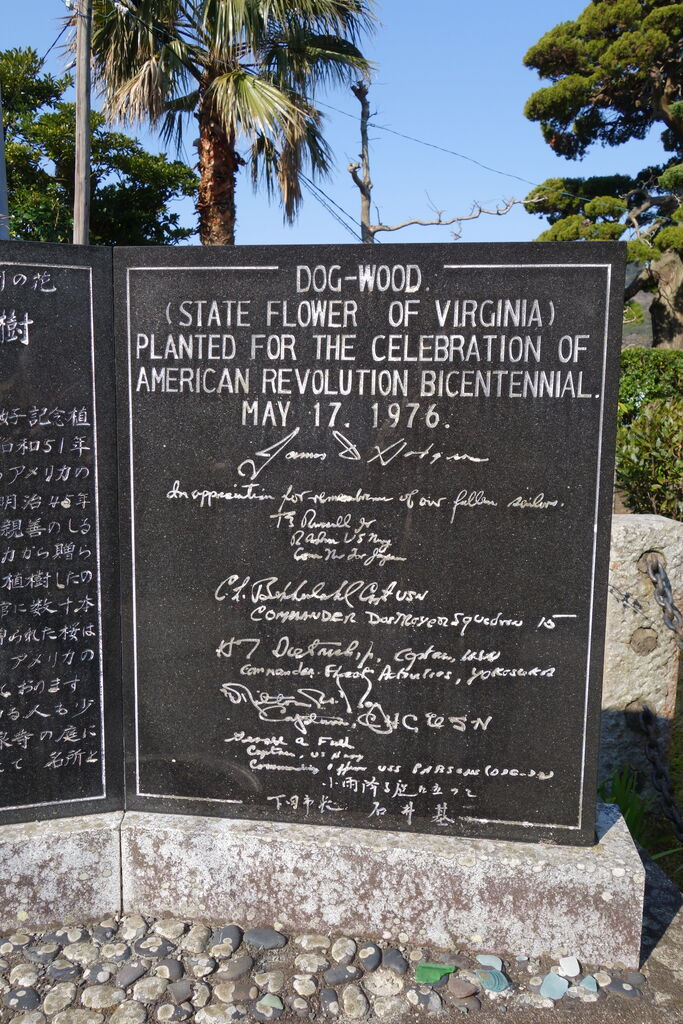 の花
樹
好記念植
昭和51年
アメリカの
明治45年
親善のしる
カから贈ら
植樹したの
に数す本
られた桜は
アメリカの
ております
る人も少
泉寺の庭に
て 名所と
DOG-WOOD.
(STATE FLOWER OF VIRGINIA)
PLANTED FOR THE CELEBRATION OF
AMERICAN REVOLUTION BICENTENNIAL.
MAY 17. 1976.
James D Hodgson
In appreciation for remembrance of our fallen sailors.
T B Russell Jr
RAdm US Navy
Com Nav For Japan
Capt USN
COMMANDER Destroyer Squadron 15
Captain, USN
Commander Fleet Activities, YOKOSUKA
Captain, CHC USN
Captain, US Navy
Commanding Officer USS PARSONS (DDG-33)
小雨降る庭に立つと
下田市長 石井基